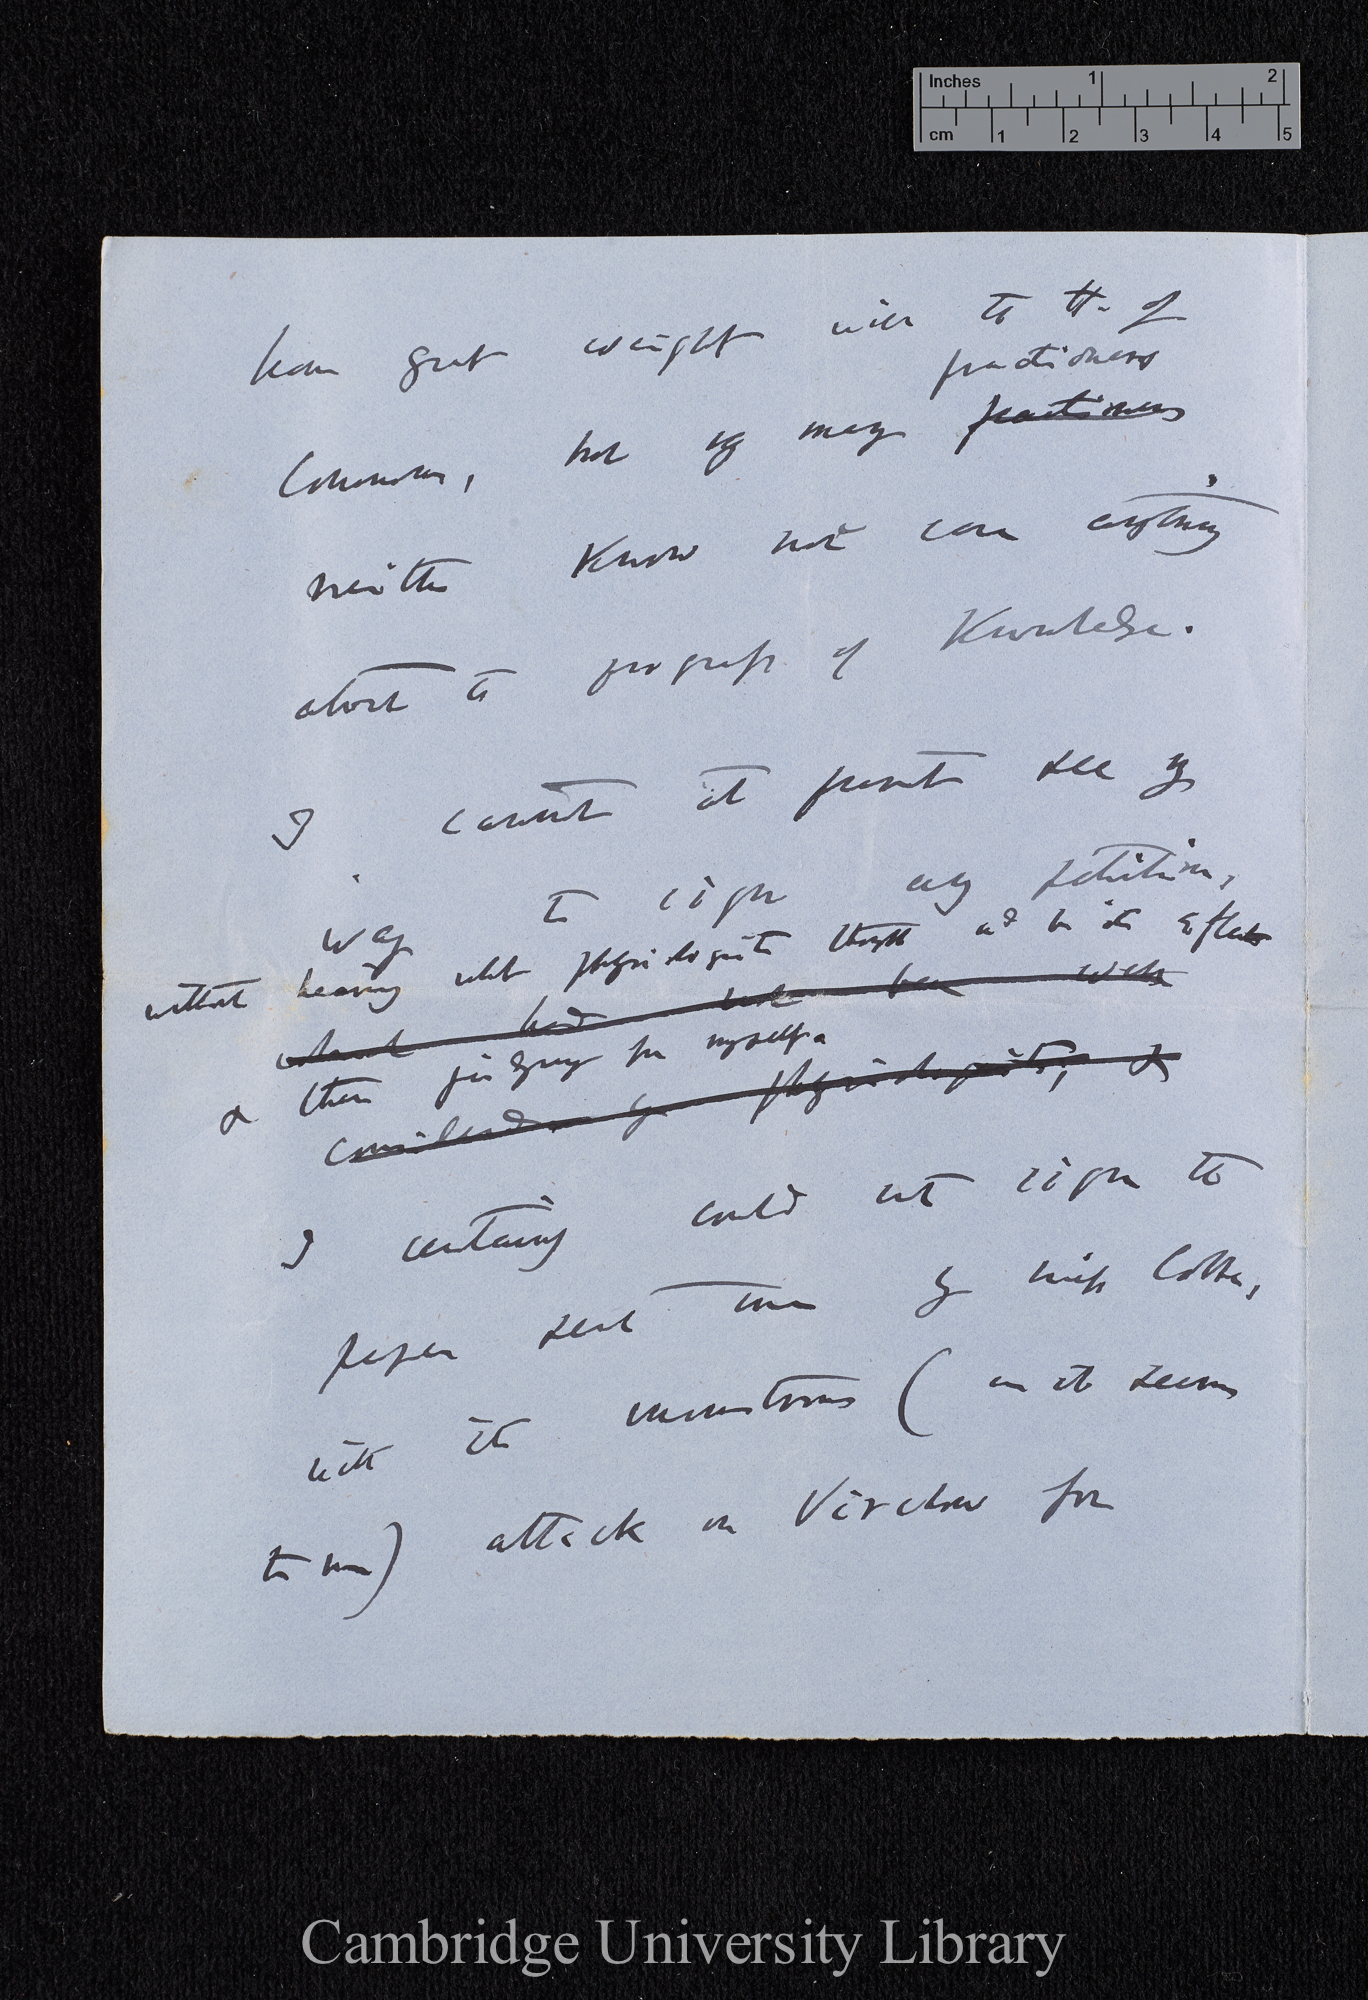 Inches 1 2
cm 1 2 3 4 5
have great weight with the H. of
practioners
Commons, but of many practioners
neither know nor care anything
about the progress of Knowledge.
I cannot at present see my
way to sign any petition,
without hearing what physiologists thought wd be its effect
which had not been well
& then judging for myself.
considered by physiologists; &
I certainly could not sign the
paper sent me by Miss Cobbe,
with its monstrous (as it seems
to me) attack on Virchow for
Cambridge University Library